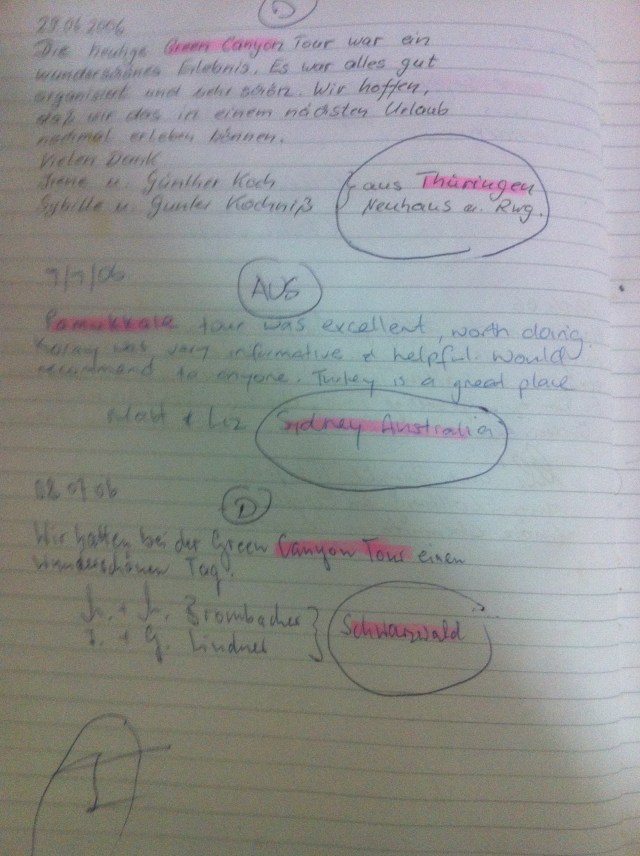 D
29.06.2006
Die heutige Green Canyon Tour war ein
wunderschönes Erlebnis. Es war alles gut
organisiert und sehr schön. Wir hoffen,
daß wir das in einem nächsten Urlaub
nochmal erleben können.
Vielen Dank
Irene u. Günther Koch
Sybille u. Gunter Kochniß
aus Thüringen
Neuhaus a. Rwg.
7/7/06
AUS
Pamukkale tour was excellent, worth doing.
was very informative & helpful. Would
recommend to anyone. Turkey is a great place
Matt & Liz Sydney Australia
08 07 06
D
Wir hatten bei der Green Canyon Tour einen
wunderschönen Tag.
+ Brombacher
I. + G. Lindner
Schwarzwald